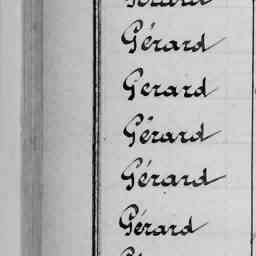 Gérard
Gérard
Gerard
Gérard
Gérard
Gérard